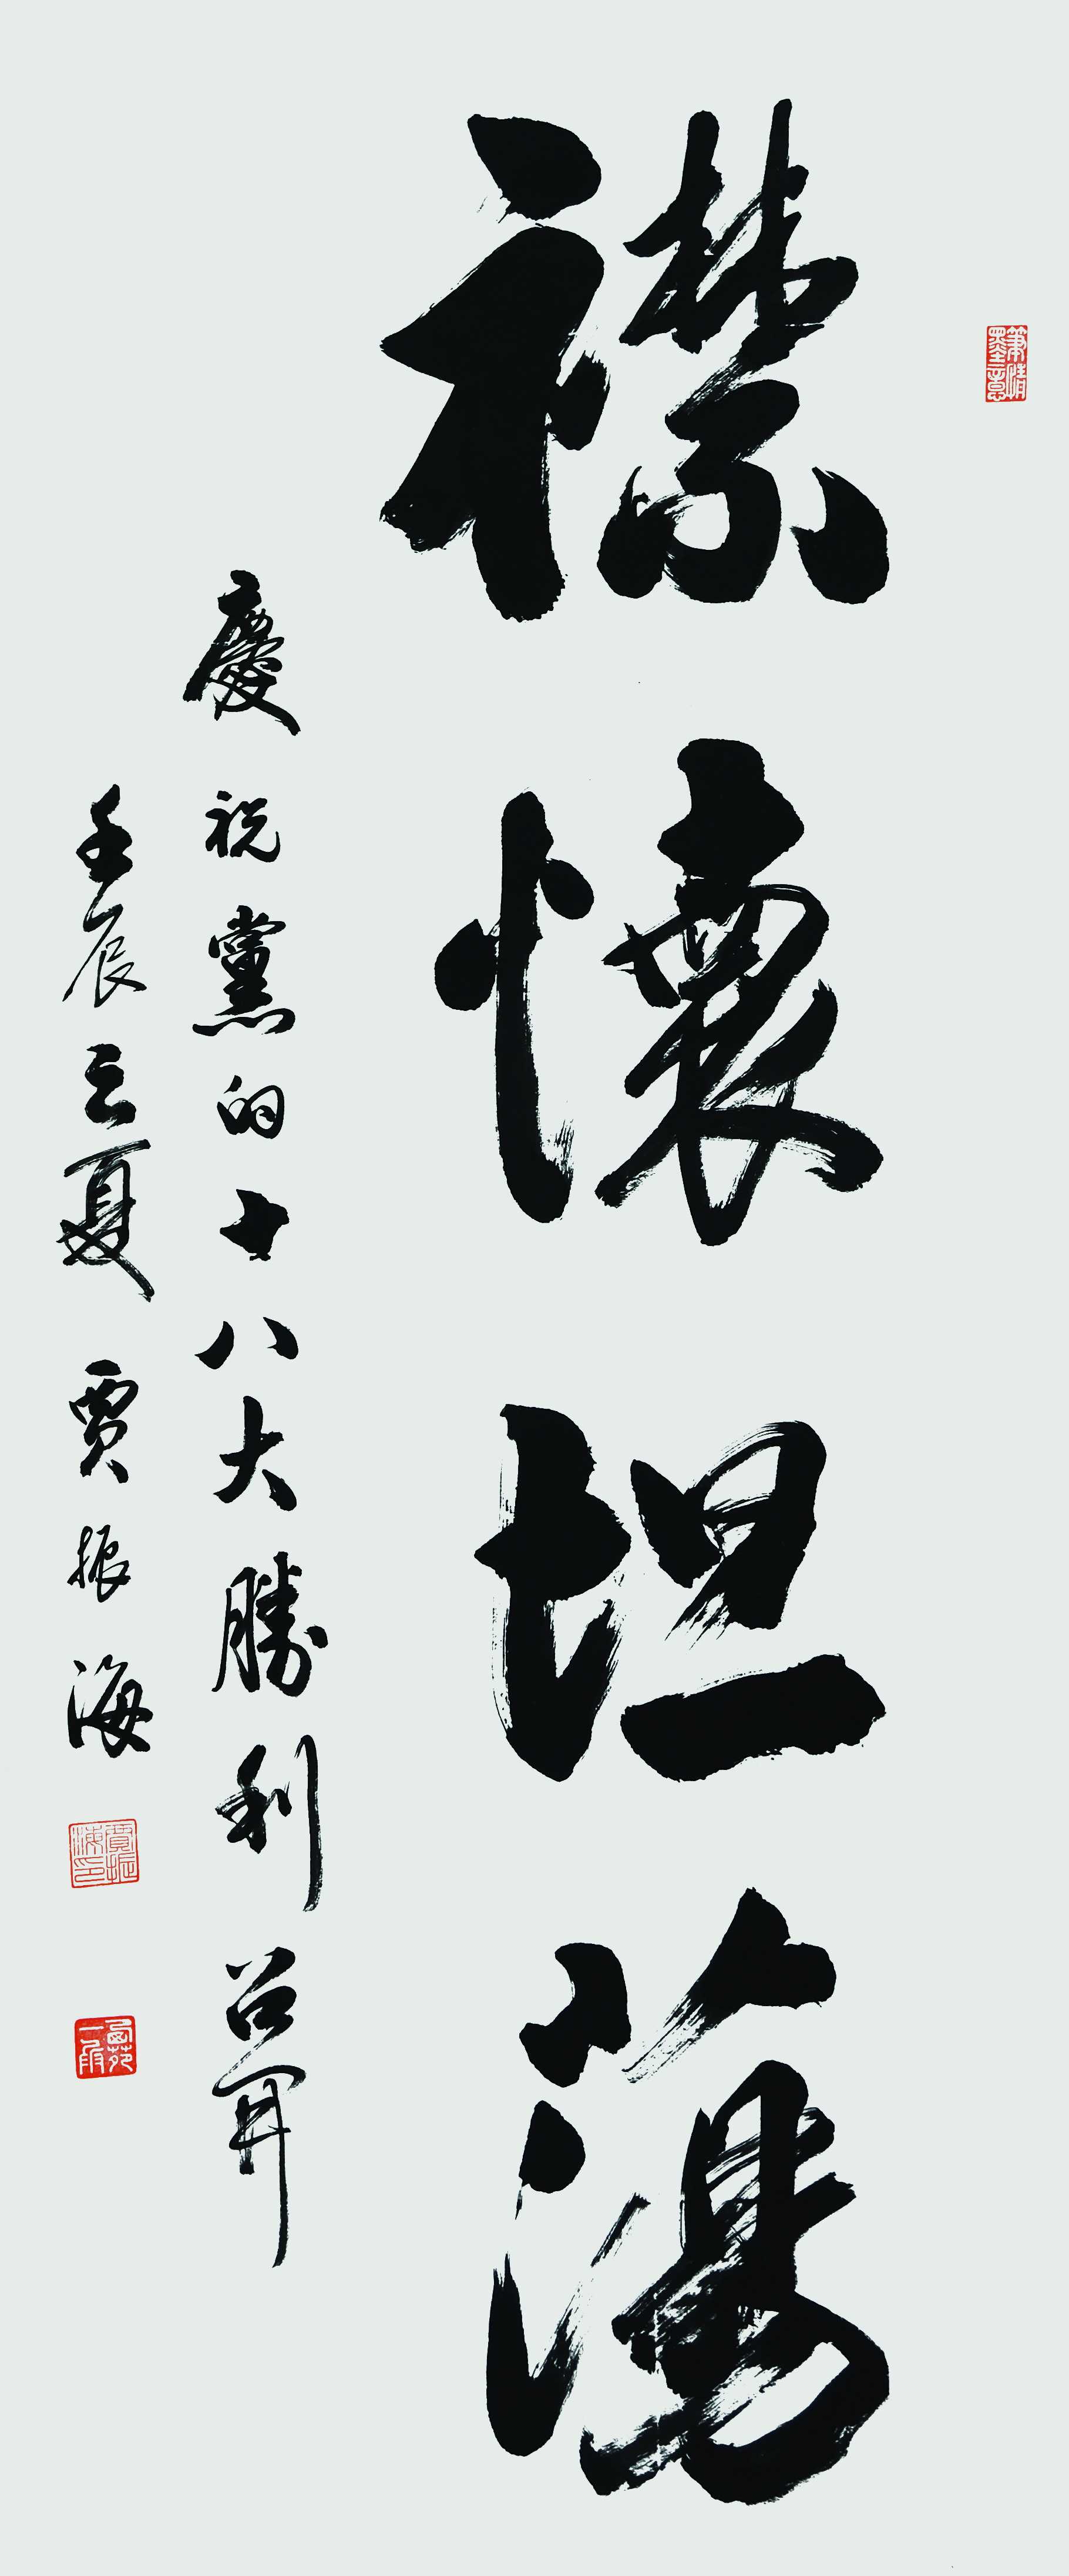 筆情墨意
襟懷坦蕩
慶祝黨的十八大勝利召開
壬辰之夏 賈振海
賈振海印